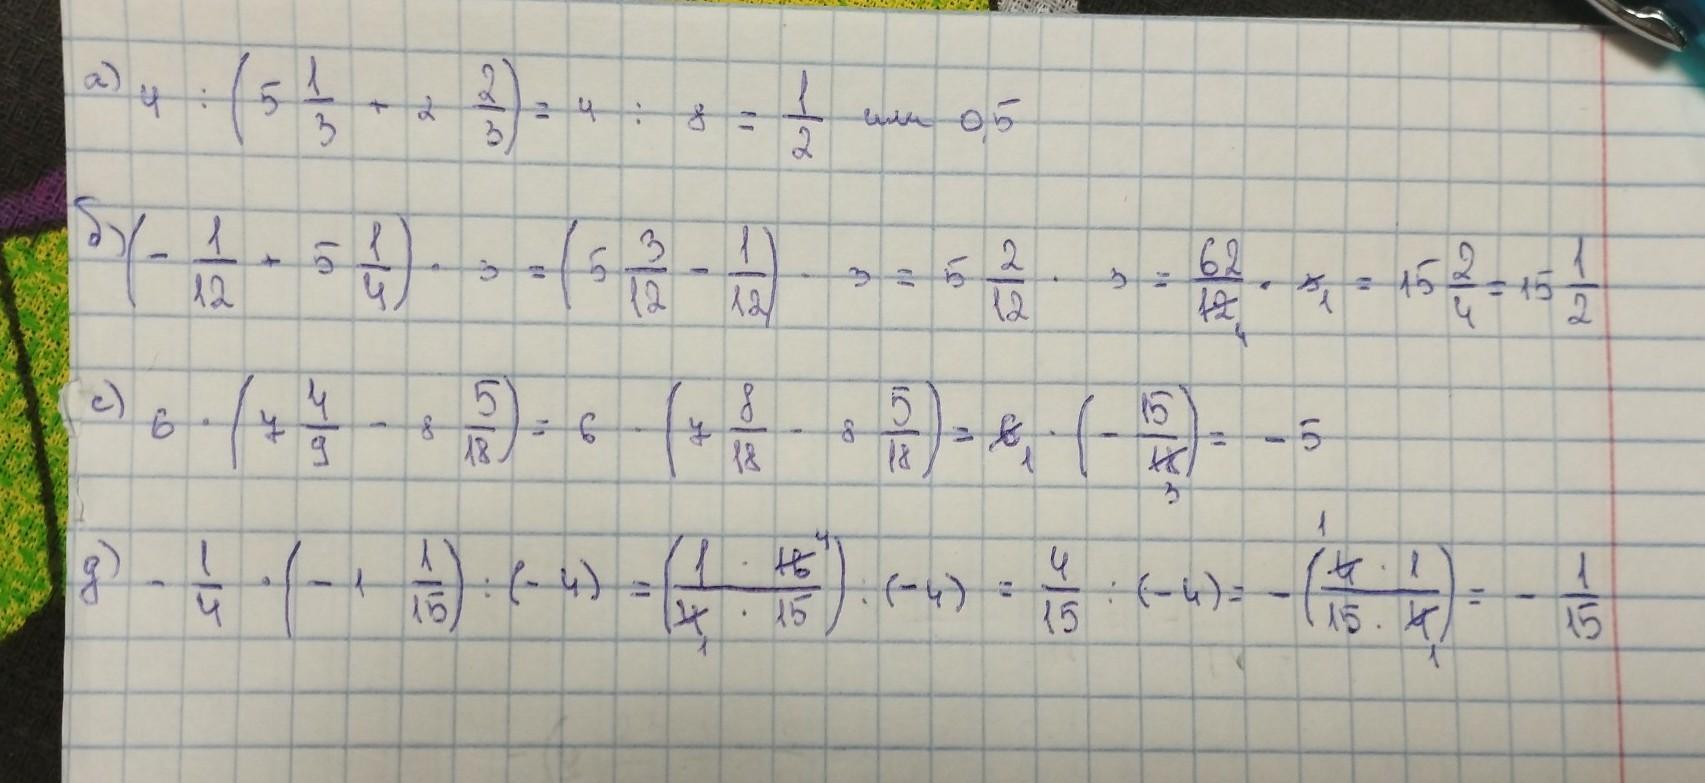 а) 4 : (5 1/3 + 2 2/3) = 4 : 8 = 1/2 или 0,5
б) (- 1/12 + 5 1/4) · 3 = (5 3/12 - 1/12) · 3 = 5 2/12 · 3 = 62/12 4 · 3 1 = 15 2/4 = 15 1/2
с) 6 · (7 4/9 - 8 5/18) = 6 · (7 8/18 - 8 5/18) = 6 1 · (- 15/18 3) = - 5
д) - 1/4 · (- 1 1/15) : (- 4) = (1 · 16 4 / 4 1 · 15) : (- 4) = 4/15 : (- 4) = - (4 1 · 1 / 15 · 4 1) = - 1/15